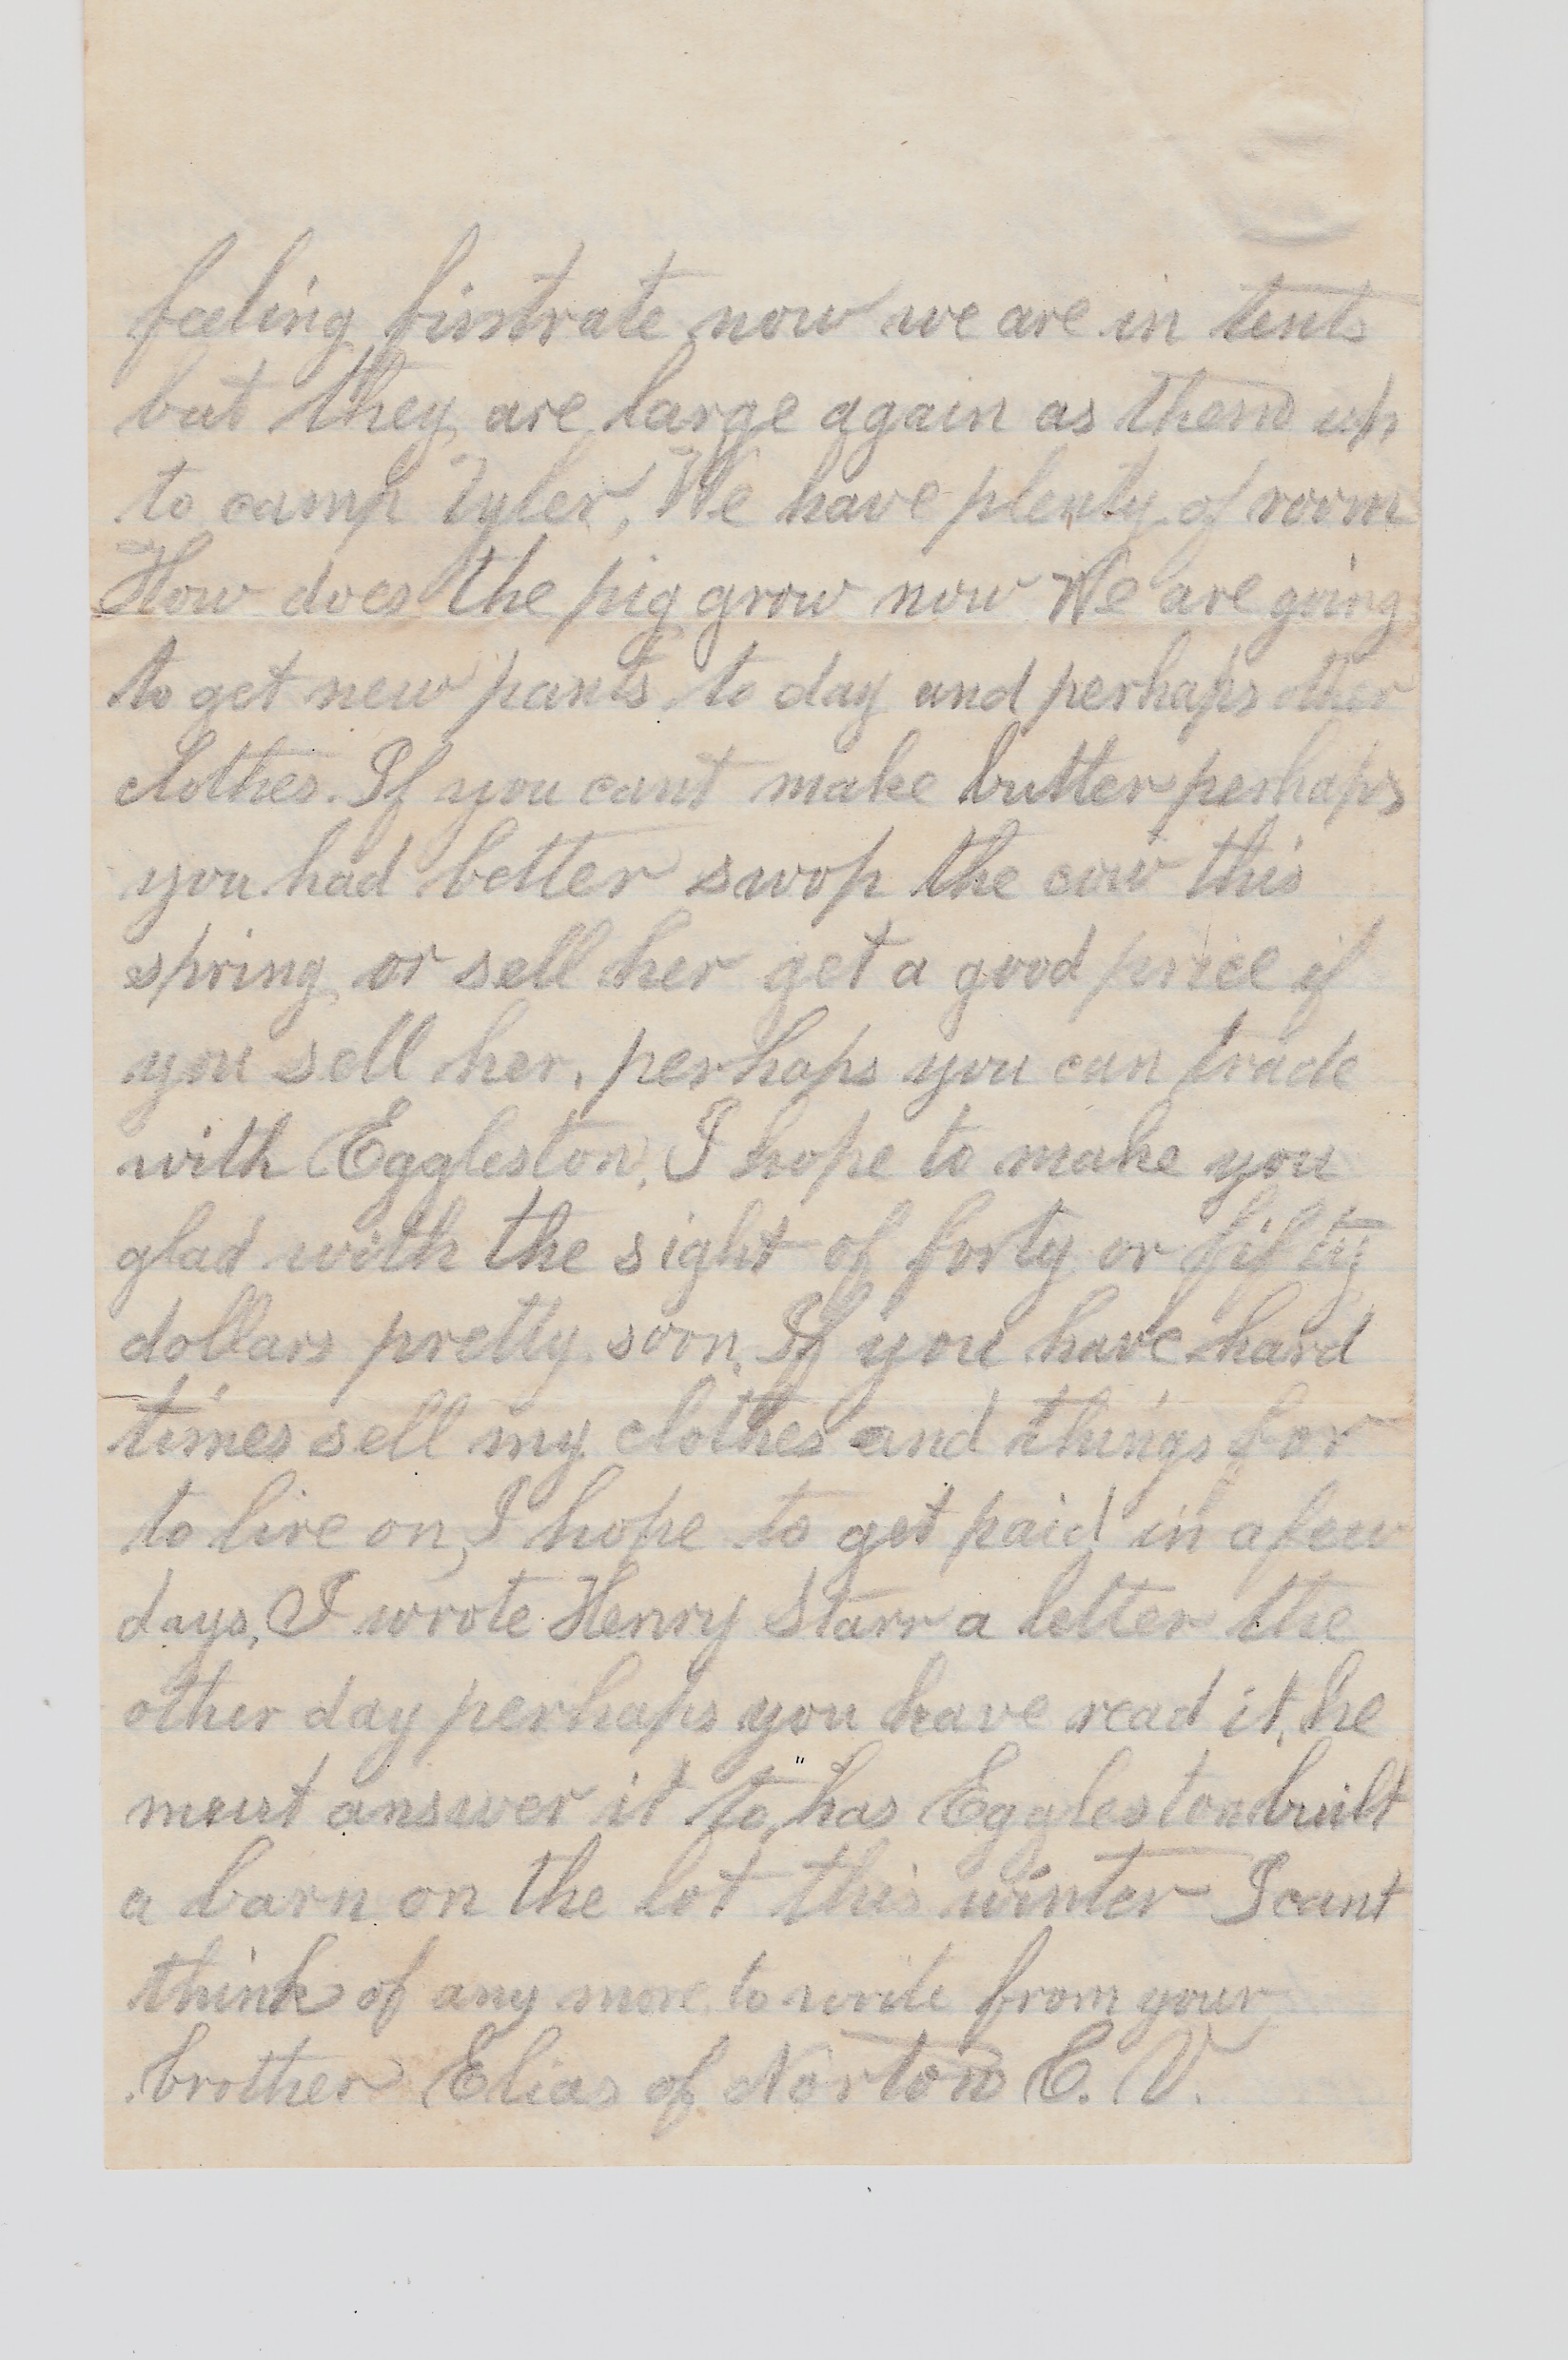 feeling firstrate now we are in tents
but they are large again as them up
to camp Tyler, We have plenty of room
How does the pig grow now We are going
to get new pants to day and perhaps other
clothes. If you cant make butter perhaps
you had better swop the cow this
spring or sell her get a good price if
you sell her, perhaps you can trade
with Eggleston, I hope to make you
glad with the sight of forty or fifty
dollars pretty soon, If you have hard
times sell my clothes and things for
to live on, I hope to get paid in a few
days, I wrote Henry Starr a letter the
other day perhaps you have read it, he
must answer it to, has Eggleston built
a barn on the lot this winter I cant
think of any more to write from your
brother Elias of Norton C. V.